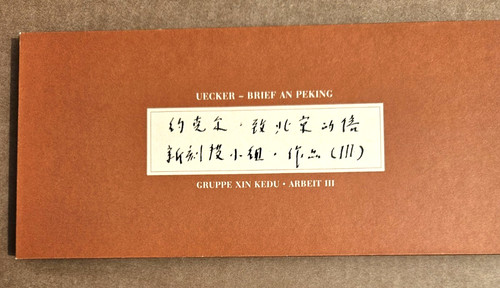 UECKER – BRIEF AN PEKING
约克尔·致北京的信
新刻度小组·作品(III)
GRUPPE XIN KEDU · ARBEIT III